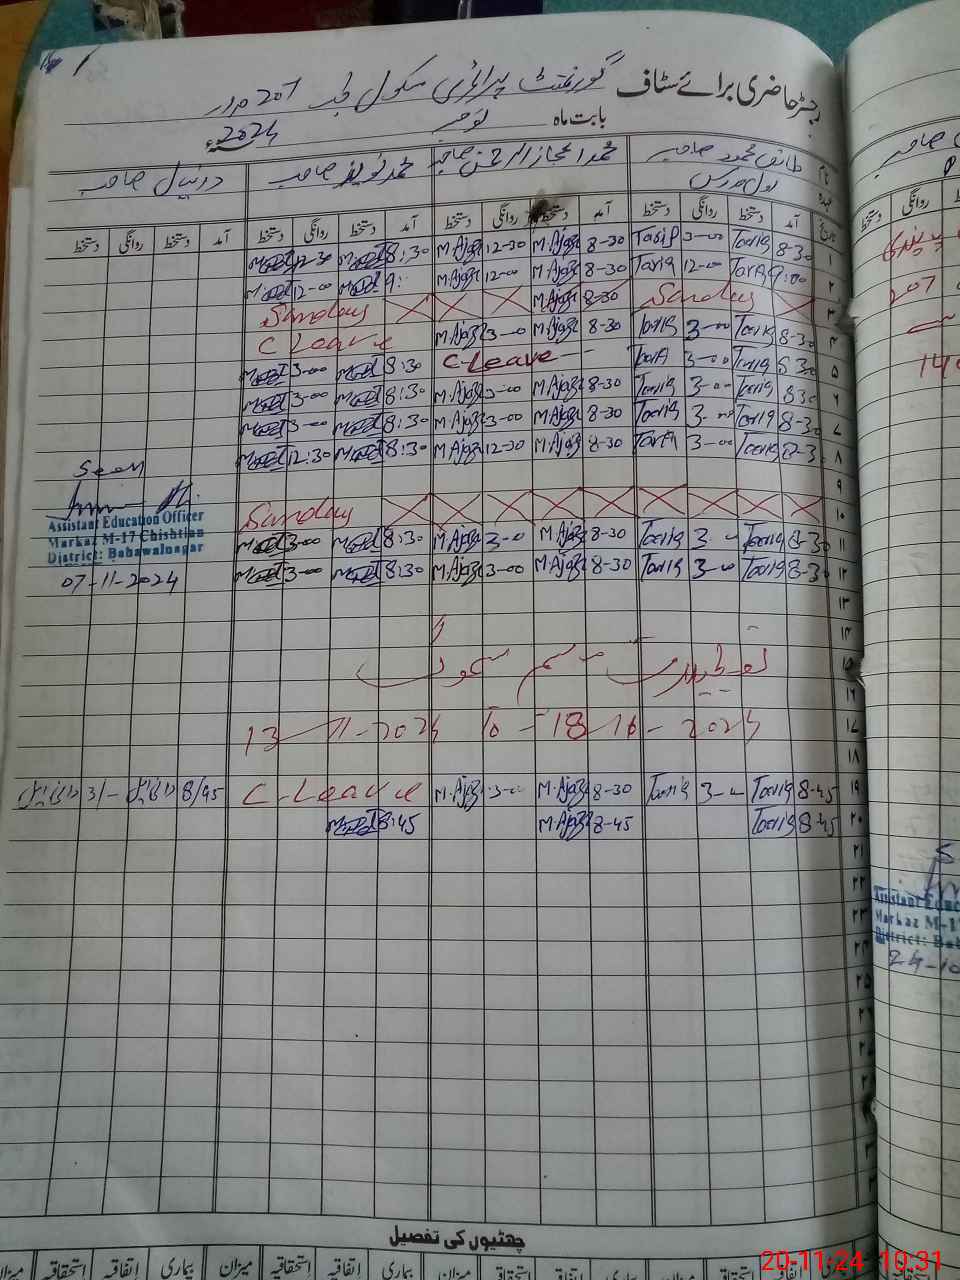 رجسٹر حاضری برائے سٹاف گورنمنٹ پرائمری سکول چک 207 مراد
بابت ماہ نومبر 2024ء
نام طارق محمود صاحب محمد اعجاز الرحمن صاحب محمد نوید صاحب دانیال صاحب
عہدہ
تاریخ آمد دستخط روانگی دستخط آمد دستخط روانگی دستخط آمد دستخط روانگی دستخط آمد دستخط روانگی دستخط
۱ 8-30 Tariq 3-00 Tariq 8-30 M.Ajaz 12-30 M.Ajaz 8:30 12-30
۲ 9:00 Tariq 12-00 Tariq 8-30 M.Ajaz 12-00 M.Ajaz 9: 12-00
۳ Sunday 8-30 M.Ajaz Sunday
۴ 8-30 Tariq 3-00 Tariq 8-30 M.Ajaz 3-00 M.Ajaz C Leave
۵ 8 30 Tariq 3-00 Tariq C-Leave 8:30 3-00
۶ 8 30 Tariq 3-00 Tariq 8-30 M.Ajaz 3-00 M.Ajaz 8:30 3-00
۷ 8-30 Tariq 3-00 Tariq 8-30 M.Ajaz 3-00 M.Ajaz 8:30 3-00
۸ 8-3 Tariq 3-00 Tariq 8-30 M.Ajaz 12-30 M.Ajaz 8:30 12:30
۹
۱۰ Sunday
۱۱ 8-30 Tariq 3- Tariq 8-30 M.Ajaz 3-00 M.Ajaz 8:30 3-00
۱۲ 8-30 Tariq 3-00 Tariq 8-30 M.Ajaz 3-00 M.Ajaz 8:30 3-00
Seen
Assistant Education Officer
Markaz M-17 Chishtian
District: Bahawalnagar
07-11-2024
۱۳
۱۴
۱۵ تعطیلات
۱۶
۱۷ 13-11-2024 To 18-11-2024
۱۸
۱۹ 8-45 Tariq 3- Tariq 8-30 M.Ajaz 3-00 M.Ajaz C-Leave 8/45 دانیال 3/- دانیال
۲۰ 8-45 Tariq 8-45 M.Ajaz 8:45
۲۱
۲۲
۲۳
۲۴
۲۵
۲۶
۲۷
۲۸
چھٹیوں کی تفصیل
اتفاقیہ استحقاقیہ میزان بیماری اتفاقیہ استحقاقیہ میزان بیماری اتفاقیہ استحقاقیہ میزان بیماری اتفاقیہ استحقاقیہ میزان
207
140
Assistant Educ
Markaz M-1
District: Bah
24-10
20-11-24 10:31